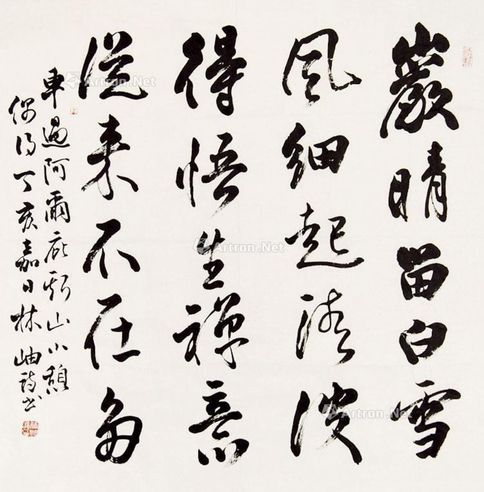 巖晴留白雪
風細起清波
得悟生禪意
從来不在多
車過阿爾庇斯山小憩
偶得丁亥嘉日林岫詩書
Artron.Net
Artron.Net
Artron.Net
Artron.Net